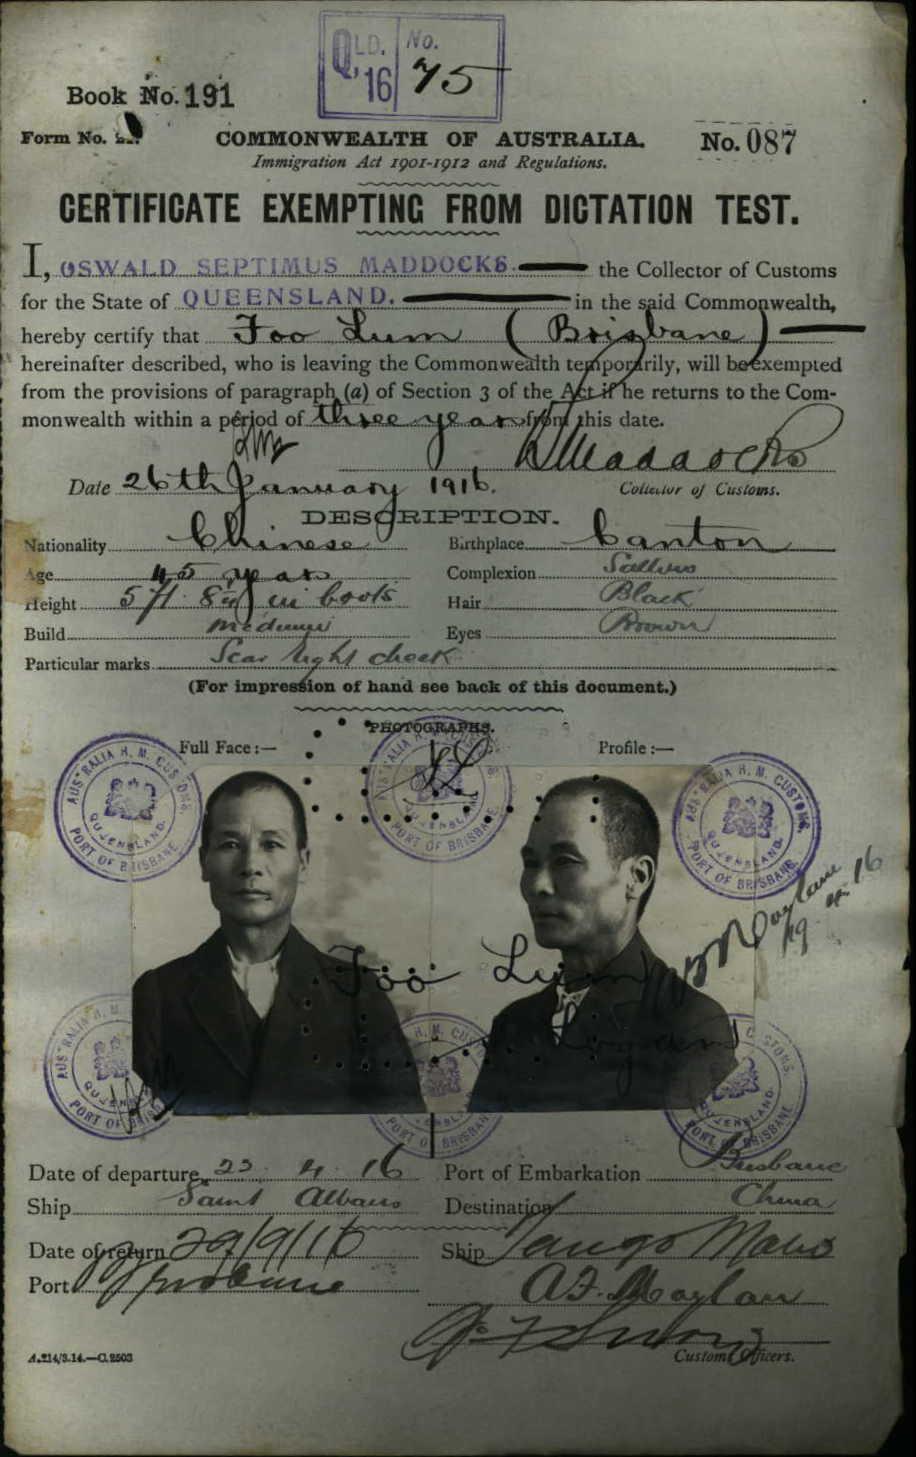 QLD. No.
'16 75
Book No. 191
Form No.
COMMONWEALTH OF AUSTRALIA.
No. 087
Immigration Act 1901-1912 and Regulations.
CERTIFICATE EXEMPTING FROM DICTATION TEST.
I, OSWALD SEPTIMUS MADDOCKS the Collector of Customs
for the State of QUEENSLAND. in the said Commonwealth,
hereby certify that Foo Lum (Brisbane)
hereinafter described, who is leaving the Commonwealth temporarily, will be exempted
from the provisions of paragraph (a) of Section 3 of the Act if he returns to the Com-
monwealth within a period of three years from this date.
Maddocks
Date 26th January 1916. Collector of Customs.
DESCRIPTION.
Nationality Chinese Birthplace Canton
Age 45 years Complexion Sallow
Height 5 ft 8 in boots Hair Black
Build Medium Eyes Brown
Particular marks Scar right cheek
(For impression of hand see back of this document.)
PHOTOGRAPHS.
Full Face:— Profile:—
AUSTRALIA H. M. CUSTOMS. QUEENSLAND. PORT OF BRISBANE
AUSTRALIA H. M. CUSTOMS. QUEENSLAND. PORT OF BRISBANE
AUSTRALIA H. M. CUSTOMS. QUEENSLAND. PORT OF BRISBANE
Moylan
19 4 16
Foo Lum
AUSTRALIA H. M. QUEENSLAND. PORT OF BRISBANE
H. M. CUSTOMS QUEENSLAND. PORT OF BRISBANE
CUSTOMS. QUEENSLAND. PORT OF BRISBANE
Date of departure 23. 4. 16 Port of Embarkation Brisbane
Ship Saint Albans Destination China
Date of return 29/9/16 Ship Tango Maru
Port Brisbane A. F. Moylan
Customs Officers.
A.214/3.14.—C.2503